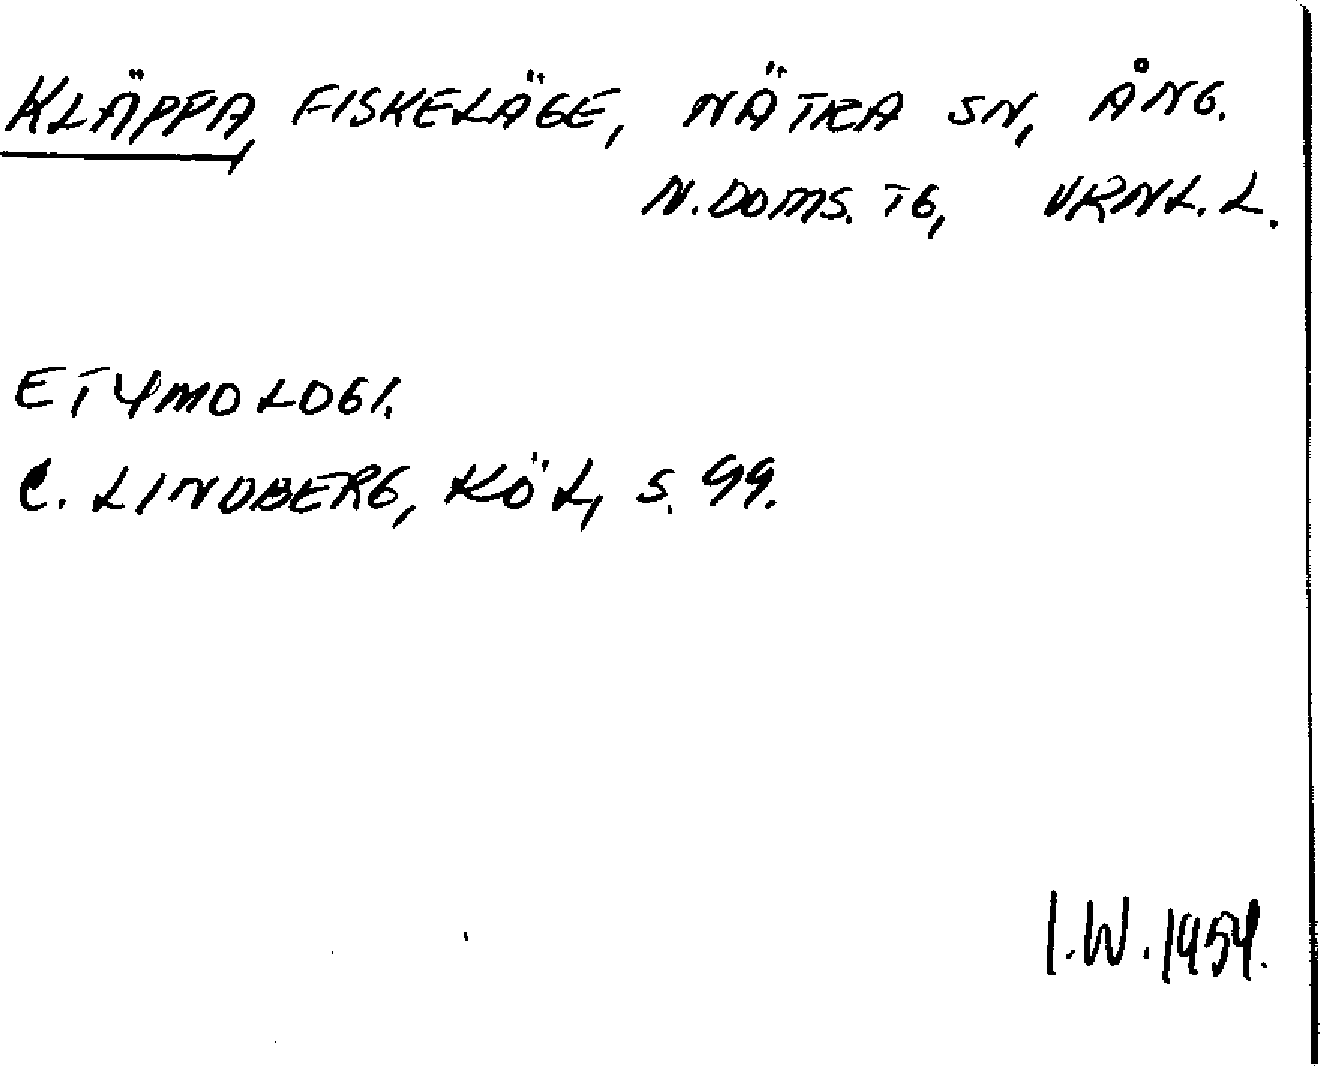 KLÄPPA, FISKELÄGE, NÄTRA SN, ÅNG.
N. DOMS. TG, VRNL. L.
ETYMOLOGI.
C. LINDBERG, KÖL, S. 99.
I.W. 1954.